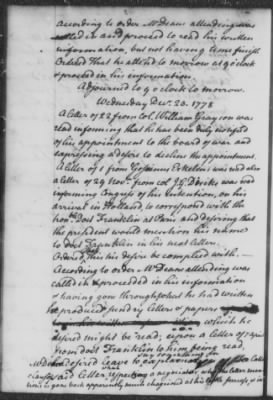 according to order Mr Deane attending was
called in and proceeded to read his written
information, but not having time finish.
Ordered That he attend to morrow at 9 oClock
& proceed in his information.
Adjourned to 9 o clock to morrow.
Wednesday Decr. 23. 1778
A letter of 22 from Col. William Grayson was
read informing that he has been duly notified
of his appointment to the board of war and
expressing a desire to decline the appointment.
A letter of 1 from Gosuinus Erkelens was read also
a letter of 29 Novr. from Col J G Diriks was read
informing Congress of his intention, on his
arrival in Holland, to correspond with the
honble. Doct Franklin at Paris and desiring that
the president would mention his name
to Doct Franklin in his next letter.
Ordered, That his desire be complied with.
According to order Mr Deane attending was
called in & proceeded in his information
& having gone through what he had written
he produced sundry letters & papers
which he
desired might be read; upon a letter of
from Doct Franklin to him being read,
Mr Deane desired leave to